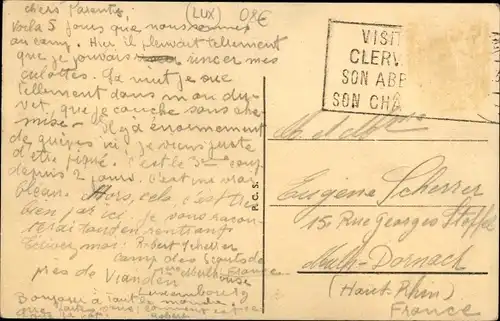 chers Parents,
Voilà 5 jours que nous sommes
au camp. Hier il pleuvait tellement
que je pouvais rincer mes
culottes. La nuit je sue
tellement dans mon du-
vet, que je couche sans che-
mise. Il y a énormément
de guêpes ici je viens juste
d'être piqué. C'est le 3ème coup
depuis 2 jours. C'est un vrai
fléau. Hors, cela, c'est très
bien par ici. je vous racon-
terai tout en rentrant
Ecrivez moi: Robert Scherrer
camp des Scouts de
Mulhouse France
près de Vianden
Luxembourg
Bonjour à tout le monde
Robert
(LUX) 08€
VISIT
CLERV
SON ABB
SON CHÂ
P.C.S.
M. et Mme
Eugène Scherrer
15, Rue Georges Stoffel
Mulh-Dornach
(Haut-Rhin)
France